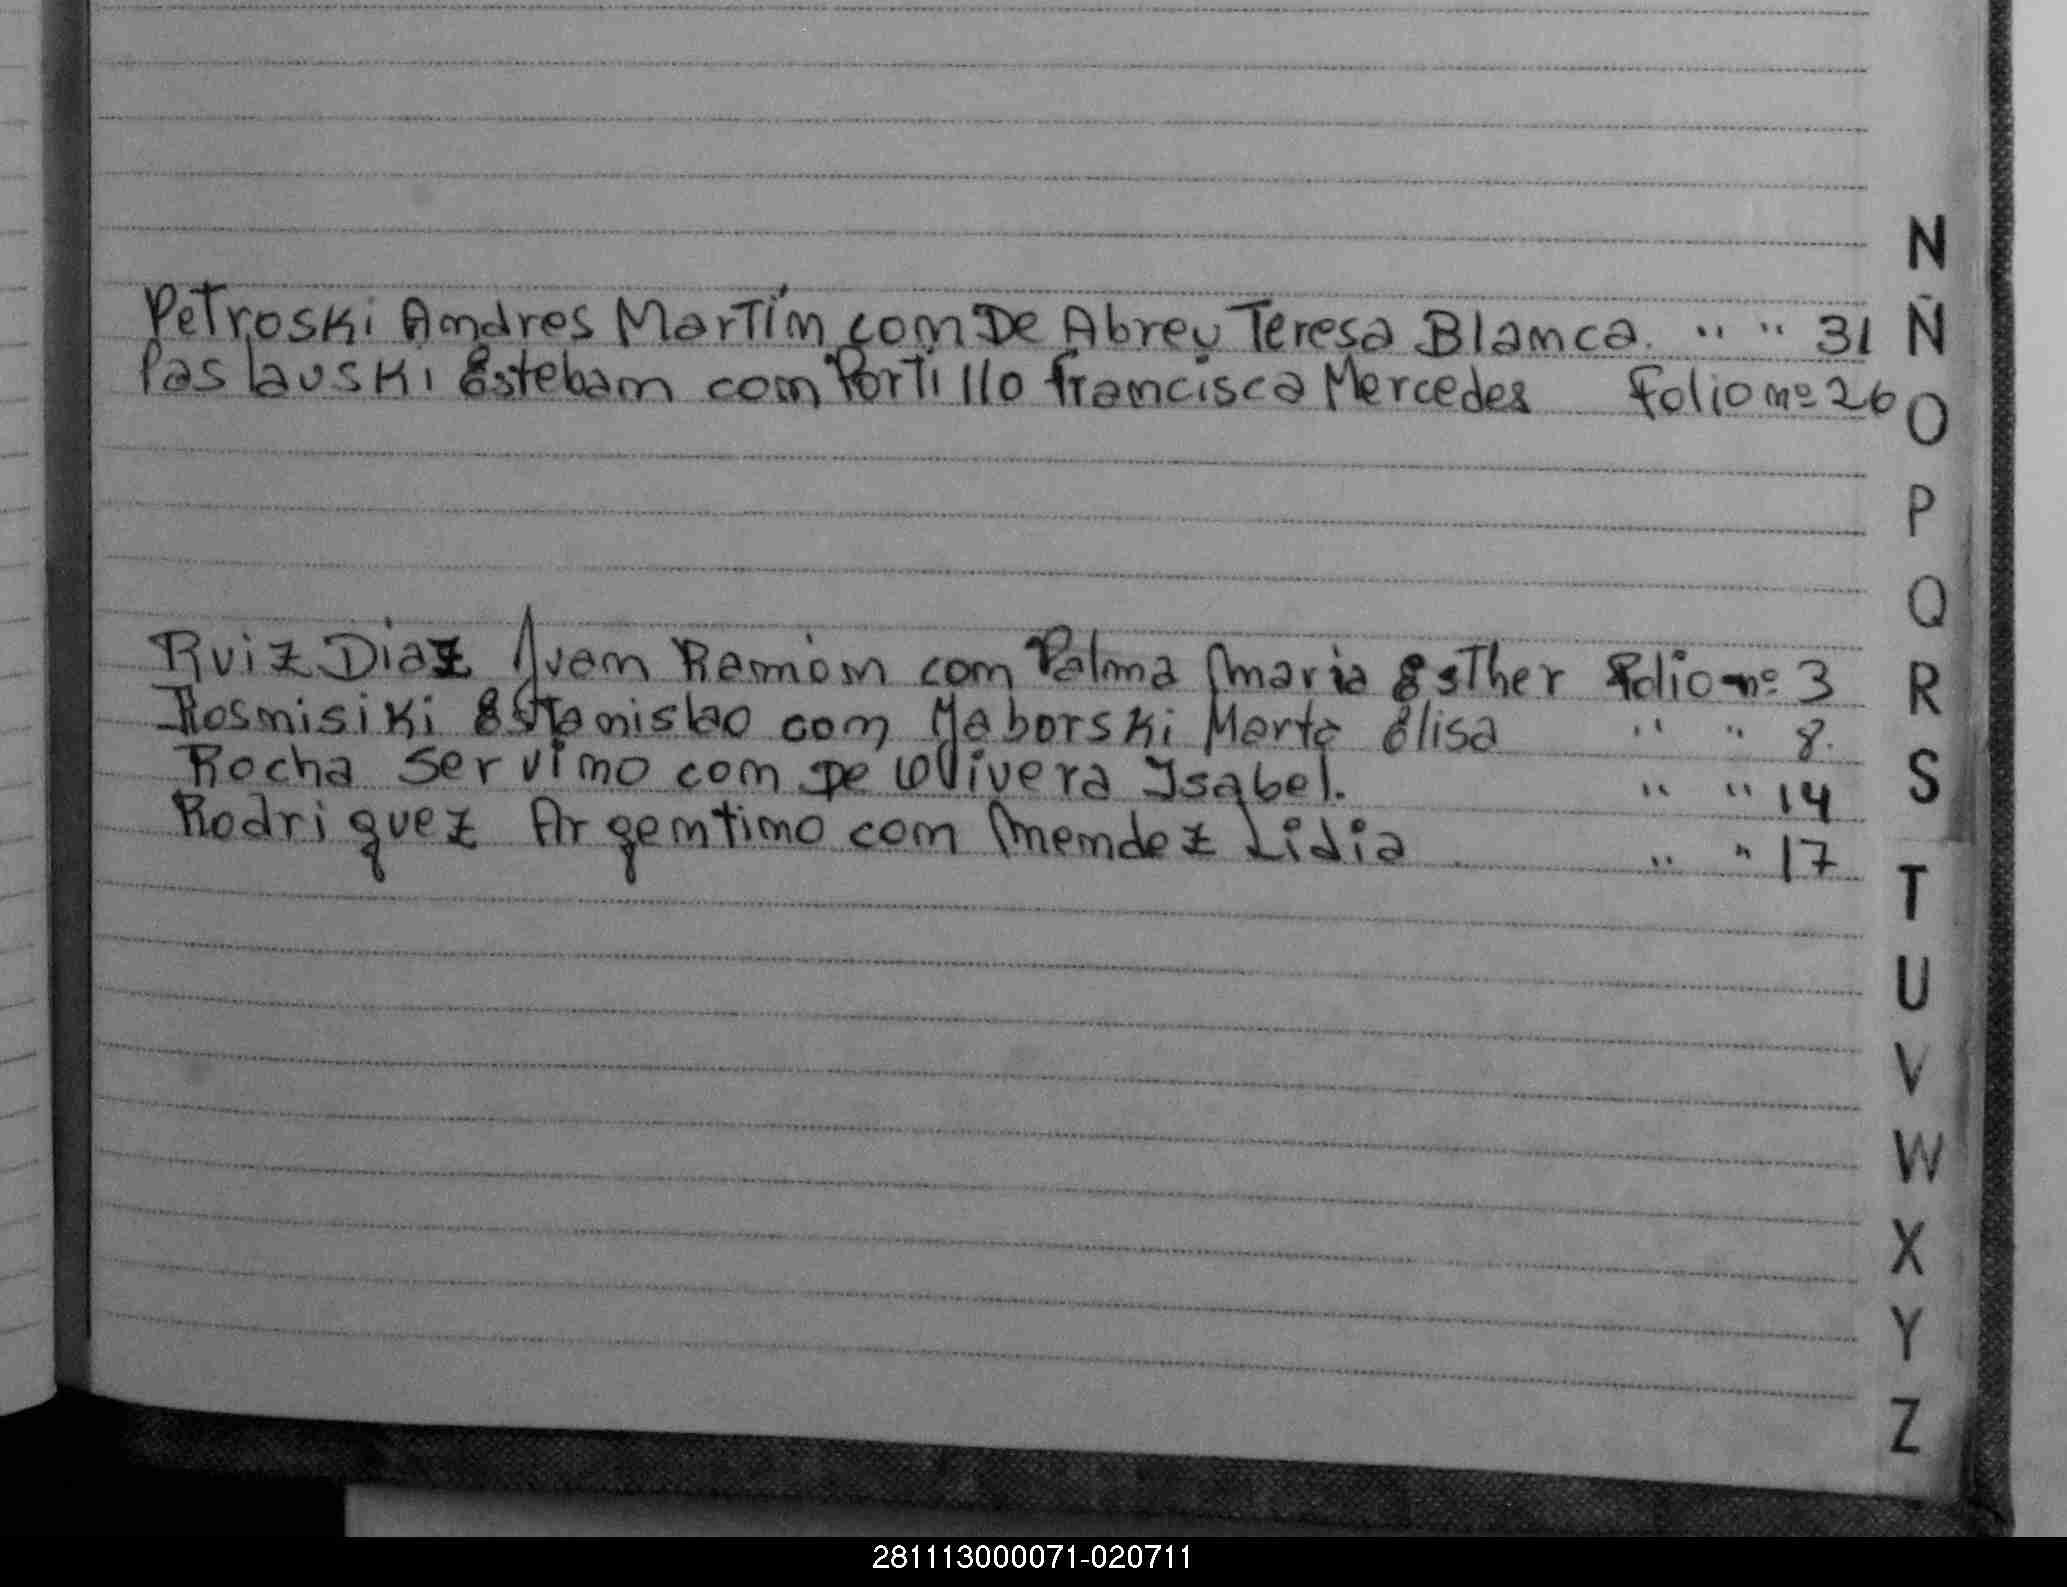 Petroski Andres Martín con De Abreu Teresa Blanca. " " 31
Paslauski Esteban con Portillo Francisca Mercedes Folio nº 26
Ruiz Diaz Juan Ramón con Palma Maria Esther Folio nº 3
Rosnisiki Estanislao con Maborski Marta Elisa " " 8.
Rocha Servino con De Olivera Ysabel. " " 14
Rodriguez Argentino con Mendez Lidia " " 17
N
Ñ
O
P
Q
R
S
T
U
V
W
X
Y
Z
281113000071-020711